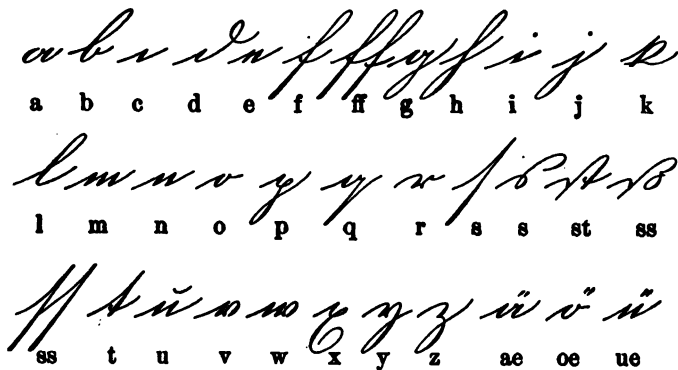 a b c d e f ff g h i j k
a b c d e f ff g h i j k
l m n o p q r ſ s ſt ß
l m n o p q r s s st ss
ſſ t u v w x y z ä ö ü
ss t u v w x y z ae oe ue